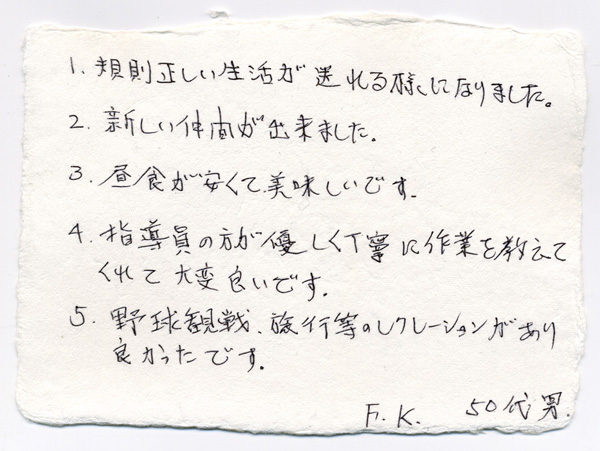 1. 規則正しい生活が送れる様になりました。
2. 新しい仲間が出来ました。
3. 昼食が安くて美味しいです。
4. 指導員の方が優しく丁寧に作業を教えて
くれて大変良いです。
5. 野球観戦、旅行等のレクレーションがあり
良かったです。
F.K. 50代男.